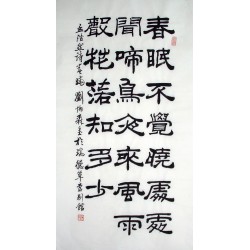 春眠不覺曉處處
聞啼鳥夜來風雨
聲花落知多少
孟浩然詩春曉 劉炳森